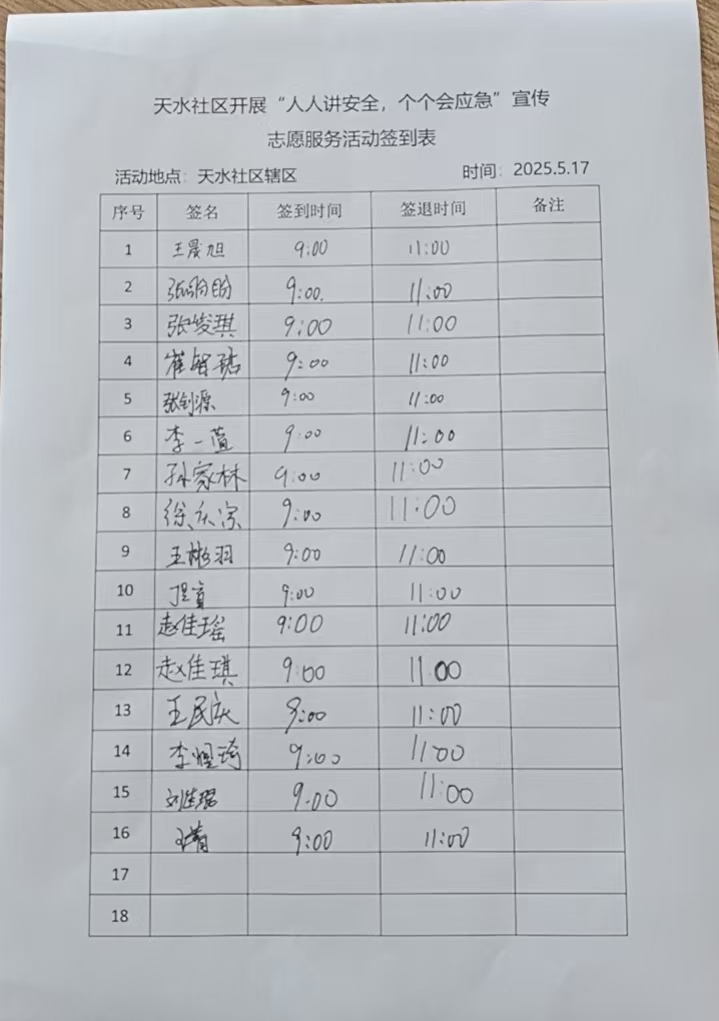 天水社区开展“人人讲安全，个个会应急”宣传
志愿服务活动签到表
活动地点：天水社区辖区 时间：2025.5.17
序号 签名 签到时间 签退时间 备注
1 王晨旭 9:00 11:00
2 张 9:00. 11:00
3 张峻琪 9:00 11:00
4 崔智 9:00 11:00
5 张剑源 9:00 11:00
6 李一萱 9:00 11:00
7 孙家林 9:00 11:00
8 徐庆 9:00 11:00
9 王彬羽 9:00 11:00
10 9:00 11:00
11 赵佳瑶 9:00 11:00
12 赵佳琪 9:00 11:00
13 王民庆 9:00 11:00
14 李煜琦 9:00 11:00
15 刘佳珺 9:00 11:00
16 9:00 11:00
17
18